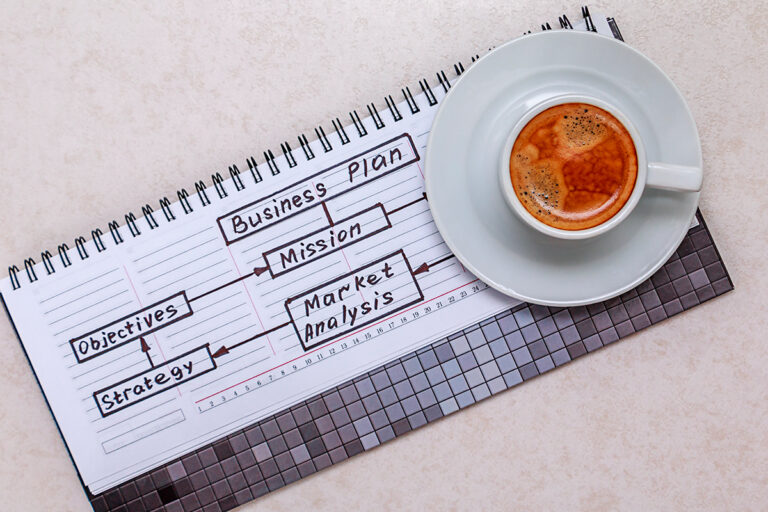 Business Plan
Mission
Objectives
Market
Analysis
Strategy
1 2 3 4 5 6 7 8 9 10 11 12 13 14 15 16 17 18 19 20 21 22 23 24